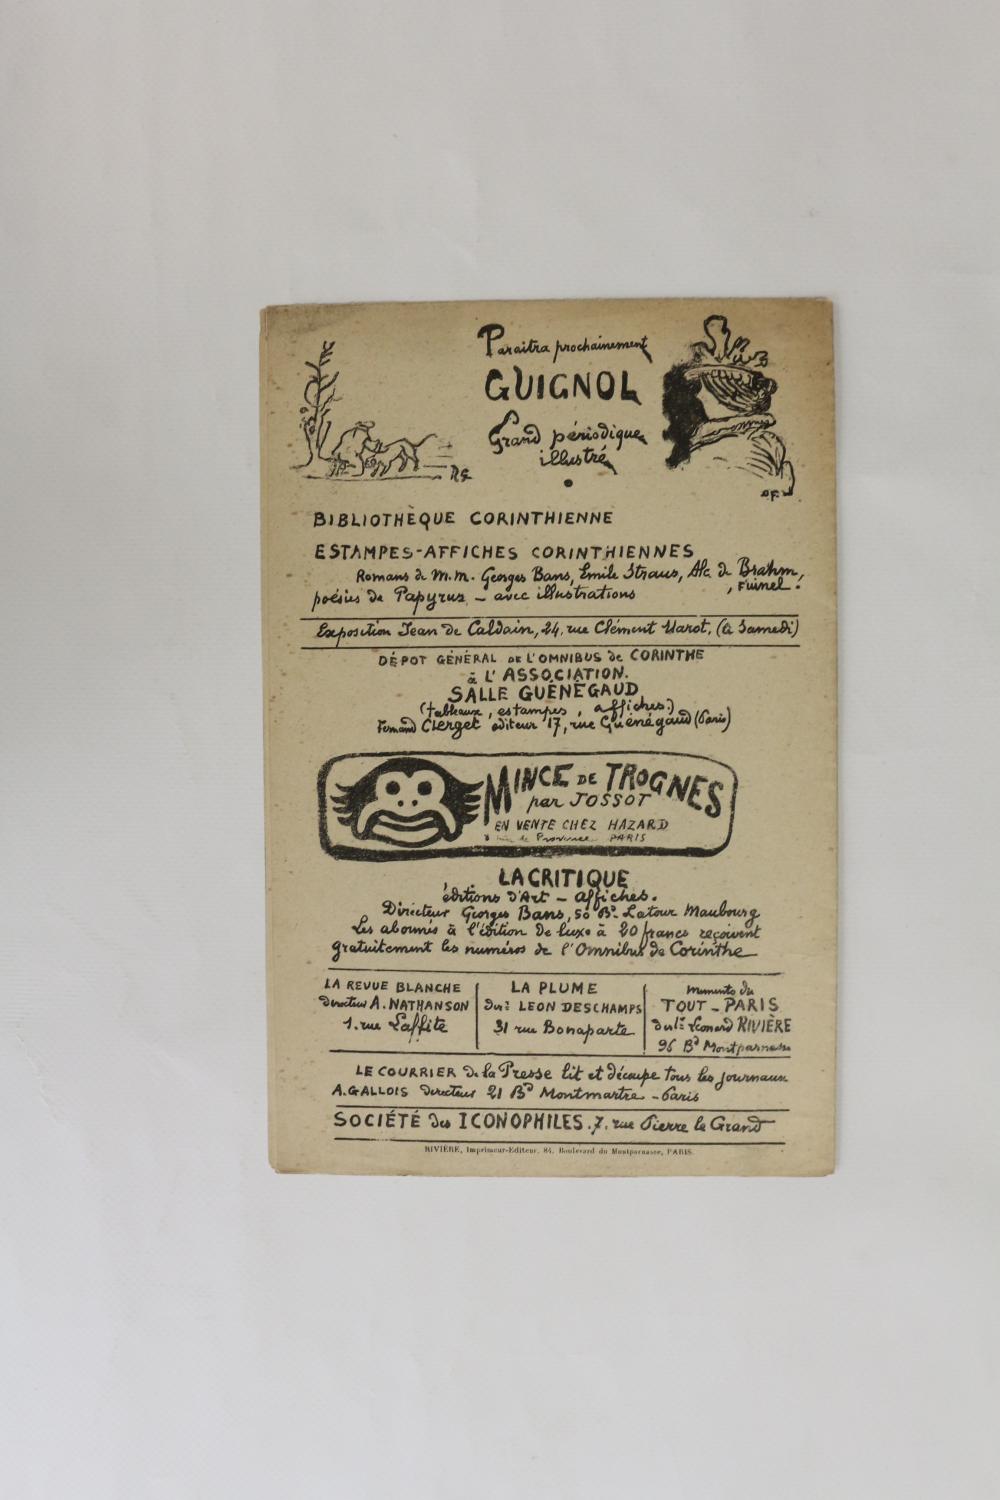 Paraitra prochainement
GUIGNOL
Grand périodique
illustré
BIBLIOTHÈQUE CORINTHIENNE
ESTAMPES-AFFICHES CORINTHIENNES
Romans de M.M. Georges Bans, Émile Straus, Alc. de Brahm,
poésies de Papyrus - avec illustrations
Exposition Jean de Caldain, 24, rue Clément Marot. (le Samedi)
DÉPOT GÉNÉRAL DE L'OMNIBUS de CORINTHE
à L'ASSOCIATION.
SALLE GUÉNÉGAUD
(tableaux, estampes, affiches.)
Fernand Clerget éditeur 17, rue Guénégaud (Paris)
MINCE DE TROGNES
par JOSSOT
EN VENTE CHEZ HAZARD
8 rue de Provence PARIS
LA CRITIQUE
éditions d'Art - affiches.
Directeur Georges Bans, 50 Bd. Latour Maubourg
Les abonnés à l'édition de luxe à 20 francs reçoivent
gratuitement les numéros de l'Omnibus de Corinthe
LA REVUE BLANCHE
directeur A. NATHANSON
1. rue Laffite
LA PLUME
Dirr LEON DESCHAMPS
31 rue Bonaparte
TOUT-PARIS
Léonard RIVIÈRE
96 Bd Montparnasse
LE COURRIER de la Presse lit et découpe tous les journaux
A. GALLOIS directeur 21 Bd Montmartre - Paris
SOCIÉTÉ des ICONOPHILES. 7. rue Pierre le Grand
RIVIÈRE, Imprimeur-Editeur, 84, Boulevard du Montparnasse, PARIS.